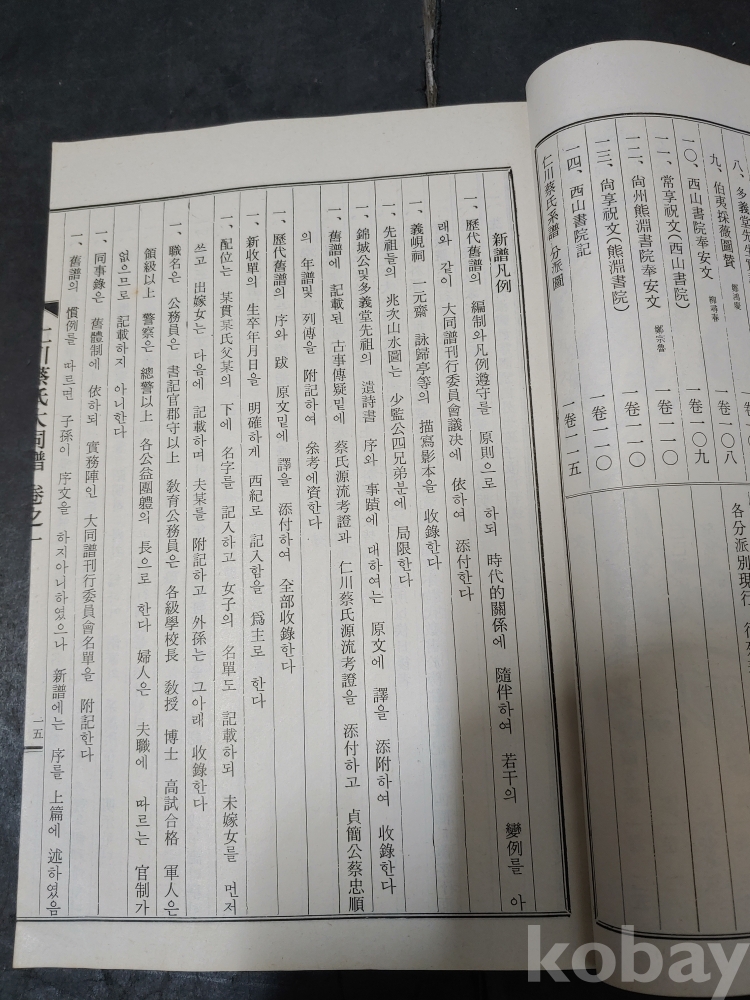 八、多義堂先生
九、伯夷採薇圖贊 鄭鴻慶 卷一 一〇八
一〇、西山書院奉安文 柳尋春 卷一 一〇九
一一、常享祝文(西山書院) 卷一 一一〇
一二、尙州熊淵書院奉安文 鄭宗魯 卷一 一一〇
一三、尙享祝文(熊淵書院) 卷一 一一〇
一四、西山書院記 卷一 一一五
仁川蔡氏系譜 分派圖
各分派別現行
新譜凡例
一、歷代舊譜의 編制와凡例遵守를 原則으로 하되 時代的關係에 隨伴하여 若干의 變例를 아
래와 같이 大同譜刊行委員會議决에 依하여 添付한다
一、義峴祠 一元齋 詠歸亭等의 描寫影本을 收錄한다
一、先祖들의 兆次山水圖는 少監公四兄弟分에 局限한다
一、錦城公및多義堂先祖의 遺詩書 序와 事蹟에 대하여는 原文에 譯을 添附하여 收錄한다
一、舊譜에 記載된 古事傳疑밑에 蔡氏源流考證과 仁川蔡氏源流考證을 添付하고 貞簡公蔡忠順
의 年譜및 列傳을 附記하여 叅考에資한다
一、歷代舊譜의 序와 跋 原文밑에 譯을 添付하여 全部收錄한다
一、新收單의 生卒年月日을 明確하게 西紀로 記入함을 爲主로 한다
一、配位는 某貫某氏父某의 下에 名字를 記入하고 女子의 名單도 記載하되 未嫁女를 먼저
쓰고 出嫁女는 다음에 記載하며 夫某를 附記하고 外孫는 그아래 收錄한다
一、職名은 公務員은 書記官郡守以上 敎育公務員은 各級學校長 敎授 博士 高試合格 軍人은
領級以上 警察은 總警以上 各公益團體의 長으로 한다 婦人은 夫職에 따르는 官制가
없으므로 記載하지 아니한다
一、同事錄은 舊體制에 依하되 實務陣인 大同譜刊行委員會名單을 附記한다
一、舊譜의 慣例를 따르면 子孫이 序文을 하지아니하였으나 新譜에는 序를 上篇에 述하였음
仁川蔡氏大同譜 卷之一 一五
kobay